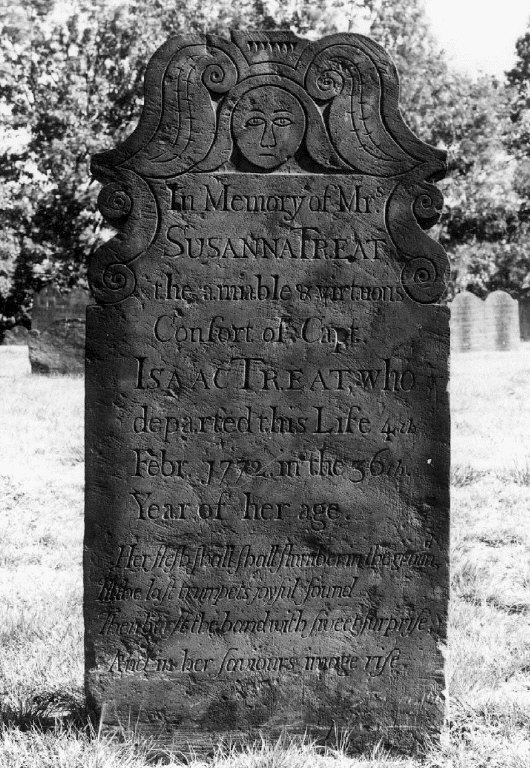 In Memory of Mrs.
SUSANNA TREAT
the amiable & virtuous
Conſort of Capt.
ISAAC TREAT, who
departed this Life 4th
Febr. 1772, in the 36th
Year of her age.
Her fleſh ſhall ſhall ſlumber in the ground,
Till the laſt trumpets joyful ſound
Then burſt the band with ſweet ſurpriſe,
And in her ſaviours image riſe.